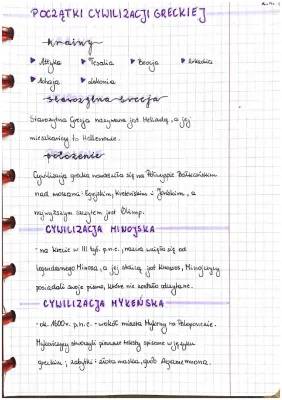 POCZĄTKI CYWILIZACJI GRECKIEJ
krainy
Attyka Tesalia Beocja Arkadia
Achaja Lakonia
starożytna Grecja
Starożytna Grecja nazywana jest Helladą, a jej
mieszkańcy to Hellenowie.
położenie
Cywilizacja grecka narodziła się na Półwyspie Bałkańskim
nad morzami: Egejskim, Kreteńskim i Jońskim, a
najwyższym szczytem jest Olimp.
CYWILIZACJA MINOJSKA
- na Krecie w III tyś. p.n.e., nazwa wzięła się od
legendarnego Minosa, a jej stolicą jest Knossos, Minojczycy
posiadali swoje pismo, które nie zostało odczytane.
CYWILIZACJA MYKEŃSKA
- ok. 1600r. p.n.e. - wokół miasta Mykeny na Peloponezie.
Mykeńczycy stworzyli pierwsze teksty spisane w języku
greckim; zabytki: złota maska, grób Agamemnona.